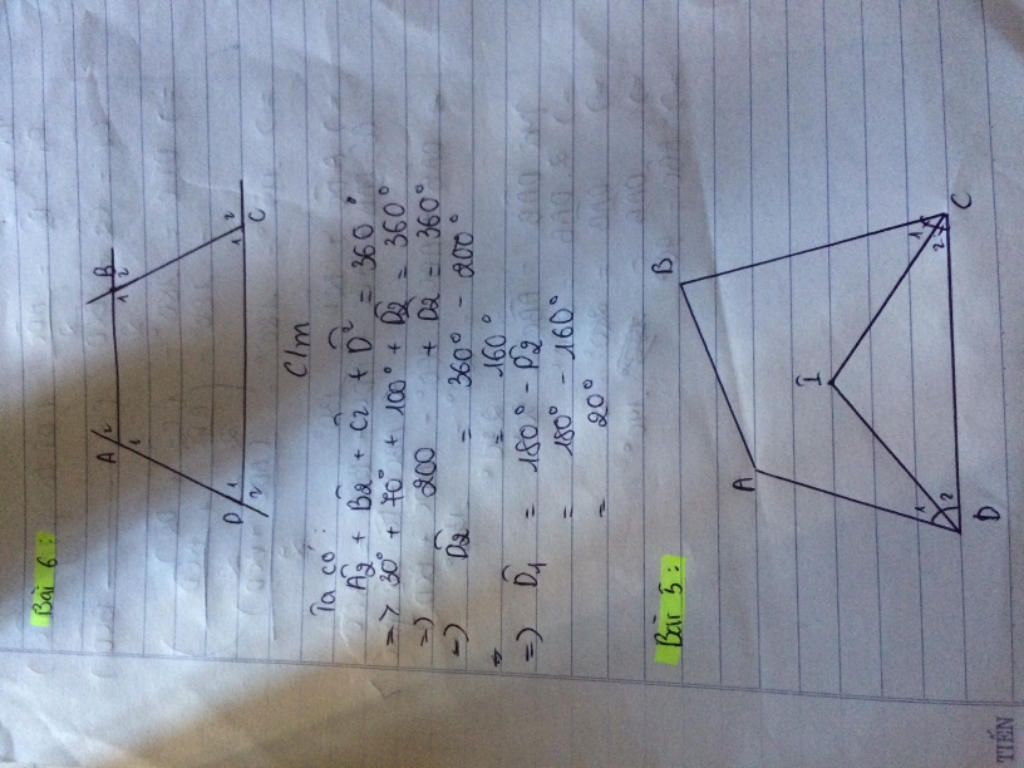 Bài 6:
A 2
1
1 B
2
D 1
2
1 2
C
C/m
Ta có:
Â2 + B̂2 + Ĉ2 + D̂2 = 360°
=> 30° + 70° + 100° + D̂2 = 360°
=> 200 + D2 = 360°
=> D̂2 = 360° - 200°
= 160°
=> D̂1 = 180° - D̂2
= 180° - 160°
= 20°
Bài 5:
B
A
I
1
2
C
1
2
D
TIẾN